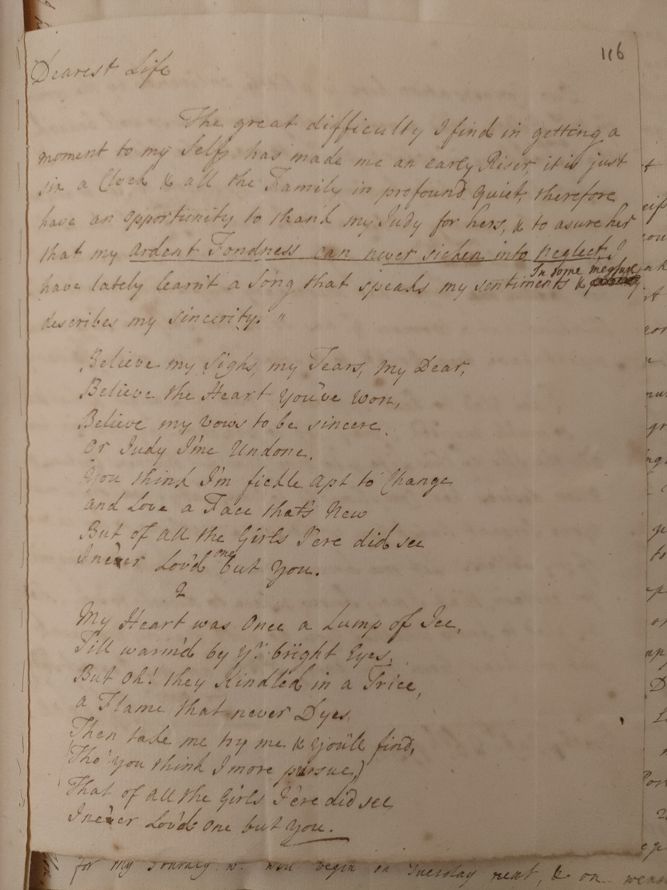 116
Dearest Life
The great difficulty I find in getting a
moment to my Self, has made me an early Riser, it is just
six a Clock & all the Family in profound quiet, therefore
have an opportunity to thank my Judy for hers, & to asure her
that my ardent Fondness can never sicken into neglect, I
have lately learn't a Song that speaks my sentiments & In some measure
describes my sincerity. "
Believe my Sighs, my Tears, my Dear,
Believe the Heart You've Won,
Believe my vows to be sincere
Or Judy I'me Undone.
You think I'm fickle apt to Change
and Love a Face that's New
But of all the Girls I'ere did see
I ne'er Lov'd one but You.
2
My Heart was Once a Lump of Ice,
Till warm'd by yr. bright Eyes,
But Oh! they Kindled in a Trice,
a Flame that never Dyes
Then take me try me & You'll find,
(Tho' You think I more pursue,)
That of all the Girls I'ere did see
I ne'er Lov'd One but You.
for my Journey wh. will begin on Tuesday next, & on